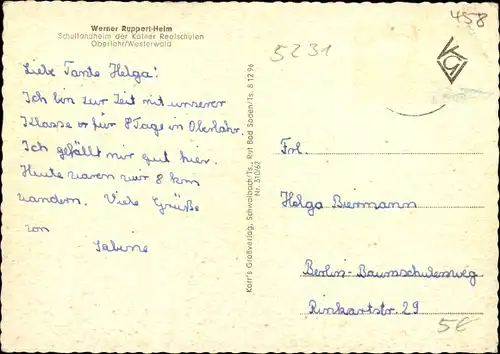 Werner Ruppert-Heim
Schullandheim der Kölner Realschulen
Oberlahr/Westerwald
458
5231
KGV
Liebe Tante Helga!
Ich bin zur Zeit mit unserer
Klasse für 8 Tage in Oberlahr.
Ich gefällt mir gut hier.
Heute waren wir 8 km
wandern. Viele Grüße
von
Sabine
Korr's Großverlag, Schwalbach/Ts., Ruf Bad Soden/Ts. 8 12 96
Nr. 310/62
Frl.
Helga Biermann
Berlin-Baumschulenweg
Rinkartstr. 29
5€